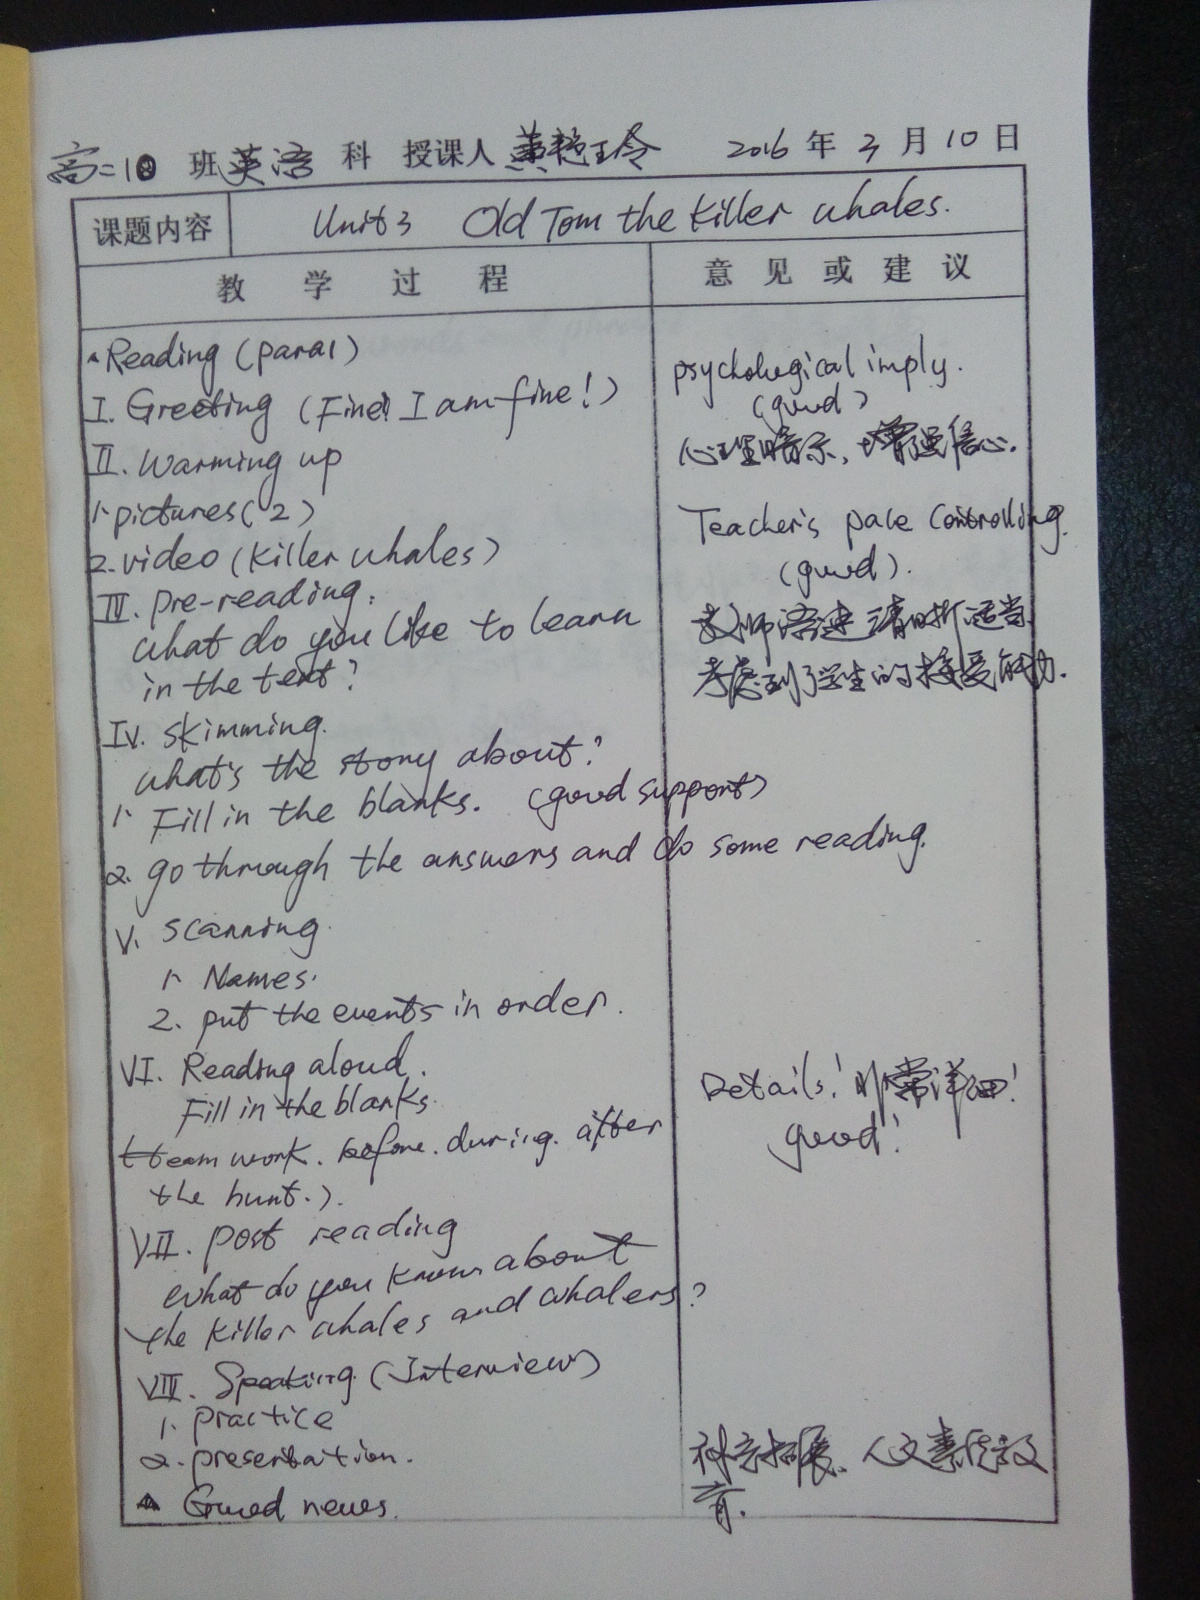 高二10 班 英语 科 授课人 黄艳玲 2016 年 3 月 10 日
课题内容 Unit 3 Old Tom the Killer whales.
教 学 过 程 意 见 或 建 议
Reading (para1)
I. Greeting (Fine! I am fine!)
II. Warming up
1. pictures (2)
2. video (Killer whales)
III. pre-reading:
what do you like to learn
in the text?
IV. skimming.
what's the story about?
1. Fill in the blanks. (good support)
2. go through the answers and do some reading.
V. scanning.
1. Names.
2. put the events in order.
VI. Reading aloud.
Fill in the blanks.
team work. before. during. after
the hunt.).
VII. post reading
what do you know about
the killer whales and whalers?
VIII. Speaking. (Interview)
1. practice
2. presentation.
▲ Good news.
psychological imply.
(good)
心理暗示，增强信心.
Teacher's pace controlling.
(good).
教师语速清晰适当、
考虑到了学生的接受能力.
Details! 非常详细!
good!
拓展、人文素质教
育.